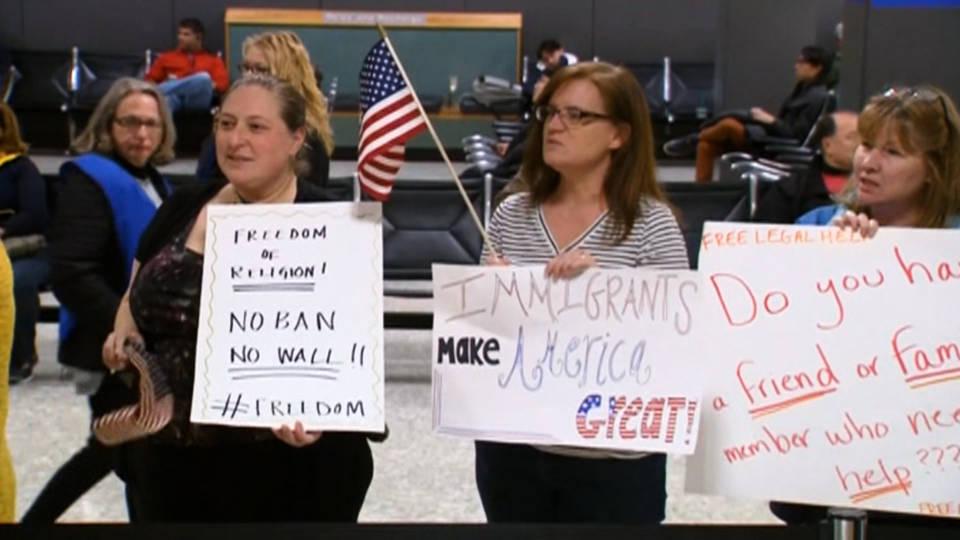 FREEDOM
OF
RELIGION!
NO BAN
NO WALL!!
#FREEDOM
IMMIGRANTS
Make America
Great!
FREE LEGAL HELP
Do you ha
a friend or Fam
member who nee
help???